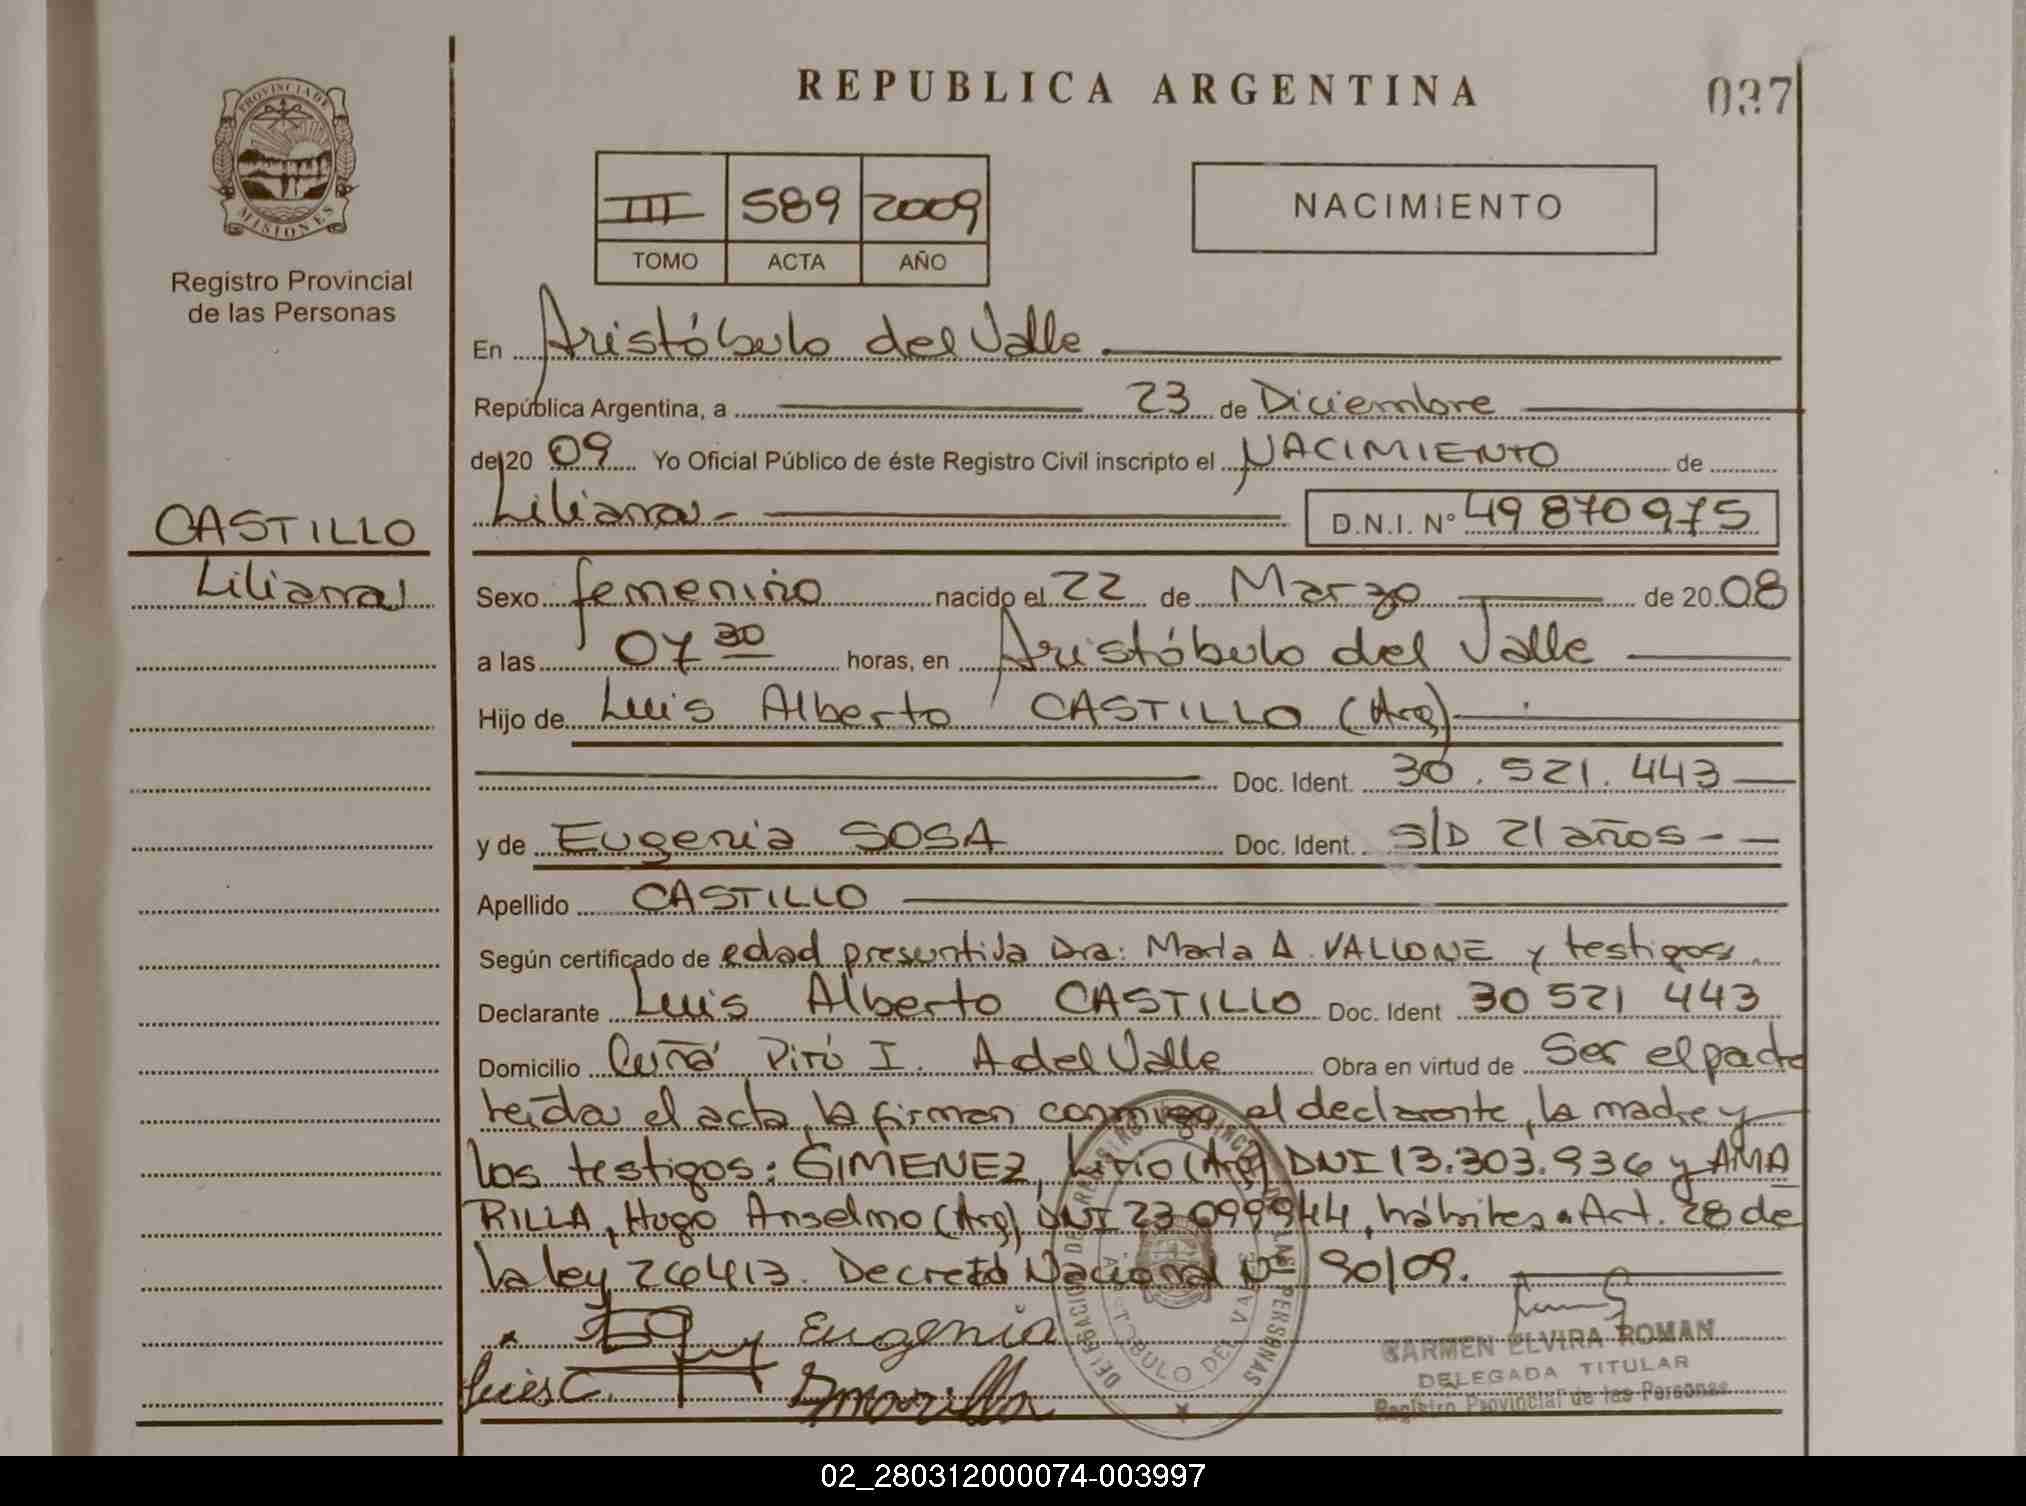 REPUBLICA ARGENTINA
037
PROVINCIA DE
MISIONES
Registro Provincial
de las Personas
III 589 2009
TOMO ACTA AÑO
NACIMIENTO
En Aristóbulo del Valle
República Argentina, a 23 de Diciembre
de 20 09 Yo Oficial Público de éste Registro Civil inscripto el NACIMIENTO de
Liliana D.N.I. N° 49 870 975
CASTILLO
Liliana
Sexo femenino nacido el 22 de Marzo de 20 08
a las 07 30 horas, en Aristóbulo del Valle
Hijo de Luis Alberto CASTILLO (Arg)
Doc. Ident. 30.521.443
y de Eugenia SOSA Doc. Ident. S/D 21 años
Apellido CASTILLO
Según certificado de edad presuntiva Dra: María A. VALLONE y testigos
Declarante Luis Alberto CASTILLO Doc. Ident 30 521 443
Domicilio Cuñá Pirú I. A del Valle Obra en virtud de Ser el padre
leída el acta, la firman conmigo el declarante, la madre y
los testigos: GIMENEZ, Lirio (Arg) DNI 13.303.936 y AMA
RILLA, Hugo Anselmo (Arg) DNI 23 099944, hábiles. Art. 28 de
la ley 26413. Decreto Nacional N° 90/09.
Eugenia
Luis C.
Amarilla
DELEGACION DE REGISTRO PROVINCIAL DE LAS PERSONAS
ARISTOBULO DEL VALLE
CARMEN ELVIRA ROMAN
DELEGADA TITULAR
Registro Provincial de las Personas
02_280312000074-003997